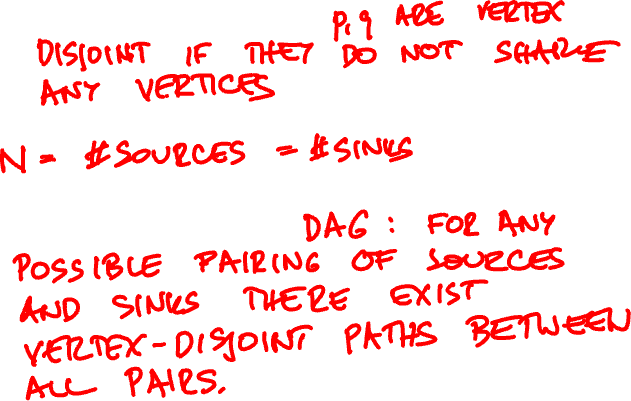 p, q ARE VERTEX
DISJOINT IF THEY DO NOT SHARE
ANY VERTICES
N = #SOURCES = #SINKS
DAG : FOR ANY
POSSIBLE PAIRING OF SOURCES
AND SINKS THERE EXIST
VERTEX-DISJOINT PATHS BETWEEN
ALL PAIRS.